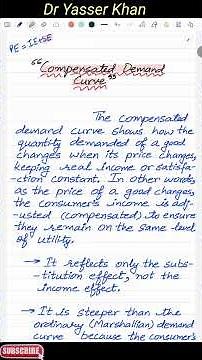 Dr Yasser Khan
PE = IE+SE
"Compensated Demand
Curve"
The compensated
demand curve shows how the
quantity demanded of a good
changes when its price changes,
keeping real income or satisfa-
-ction constant. In other words,
as the price of a good changes,
the consumer's income is adj-
-usted (compensated) to ensure
they remain on the same level
of utility.
→ It reflects only the subs-
-titution effect, not the
income effect.
→ It is steeper than the
ordinary (Marshallian) demand
curve because the consumer's
SUBSCRIBE